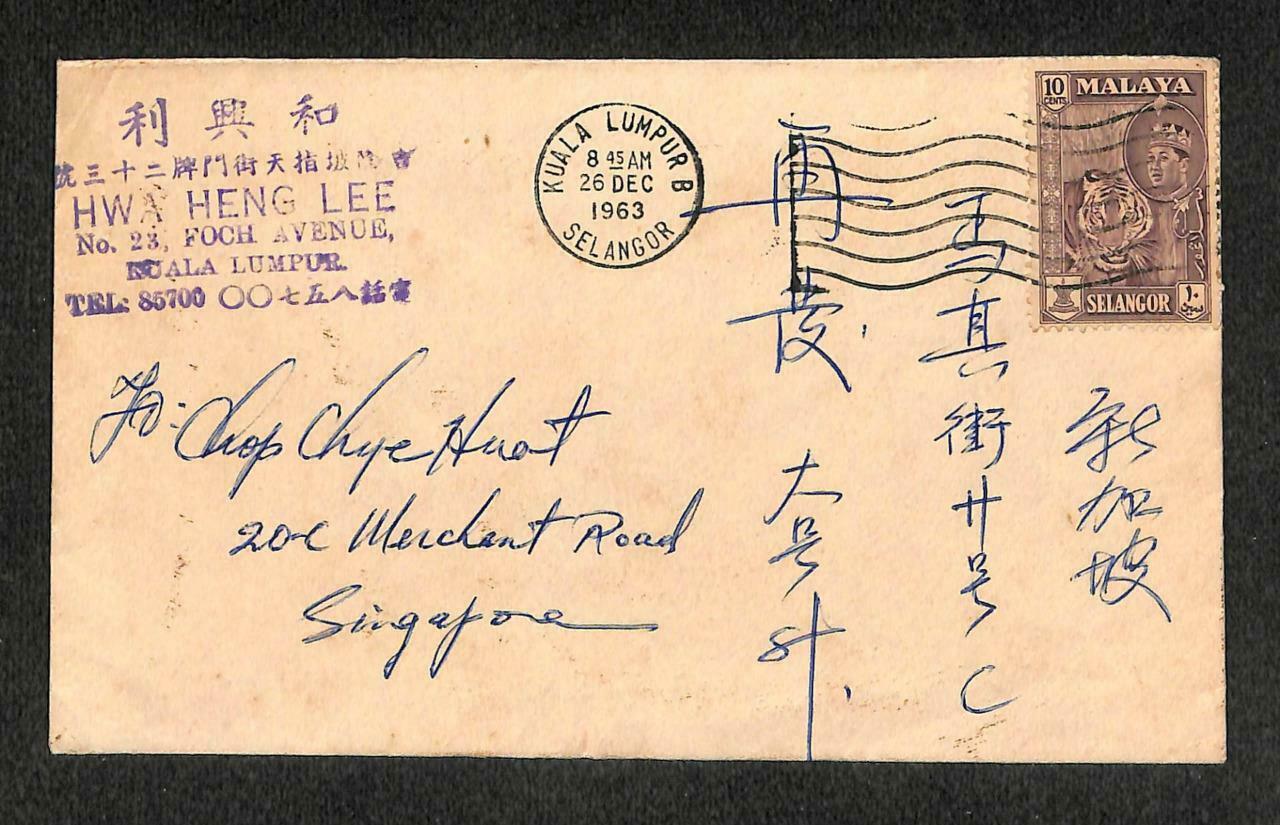 和興利
吉隆坡指天街門牌二十三號
HWA HENG LEE
No. 23, FOCH AVENUE,
KUALA LUMPUR.
TEL: 85700 電話八五七〇〇
KUALA LUMPUR B
8 45 AM
26 DEC
1963
SELANGOR
10 CENTS
MALAYA
SELANGOR
١٠
سين
To: Chop Chye Huat
20-C Merchant Road
Singapore
新加坡
馬真街廿号C
再發 大号